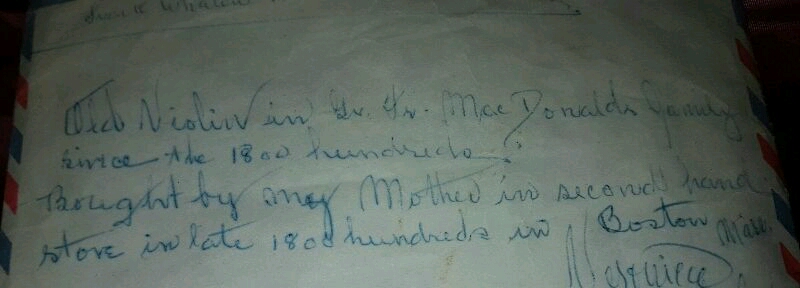 Frank Whalen
Old Violin in Gr. Gr. MacDonalds family
since the 1800 hundreds.
Bought by my Mother in second hand
store in late 1800 hundreds in Boston Mass.